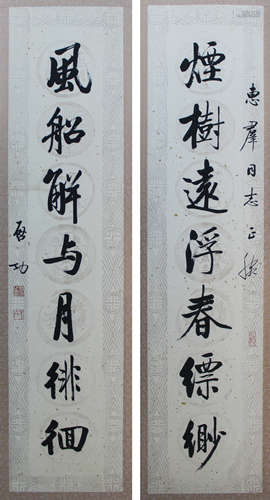 惠群同志正腕
煙樹遠浮春縹緲
風船解与月徘徊
启功